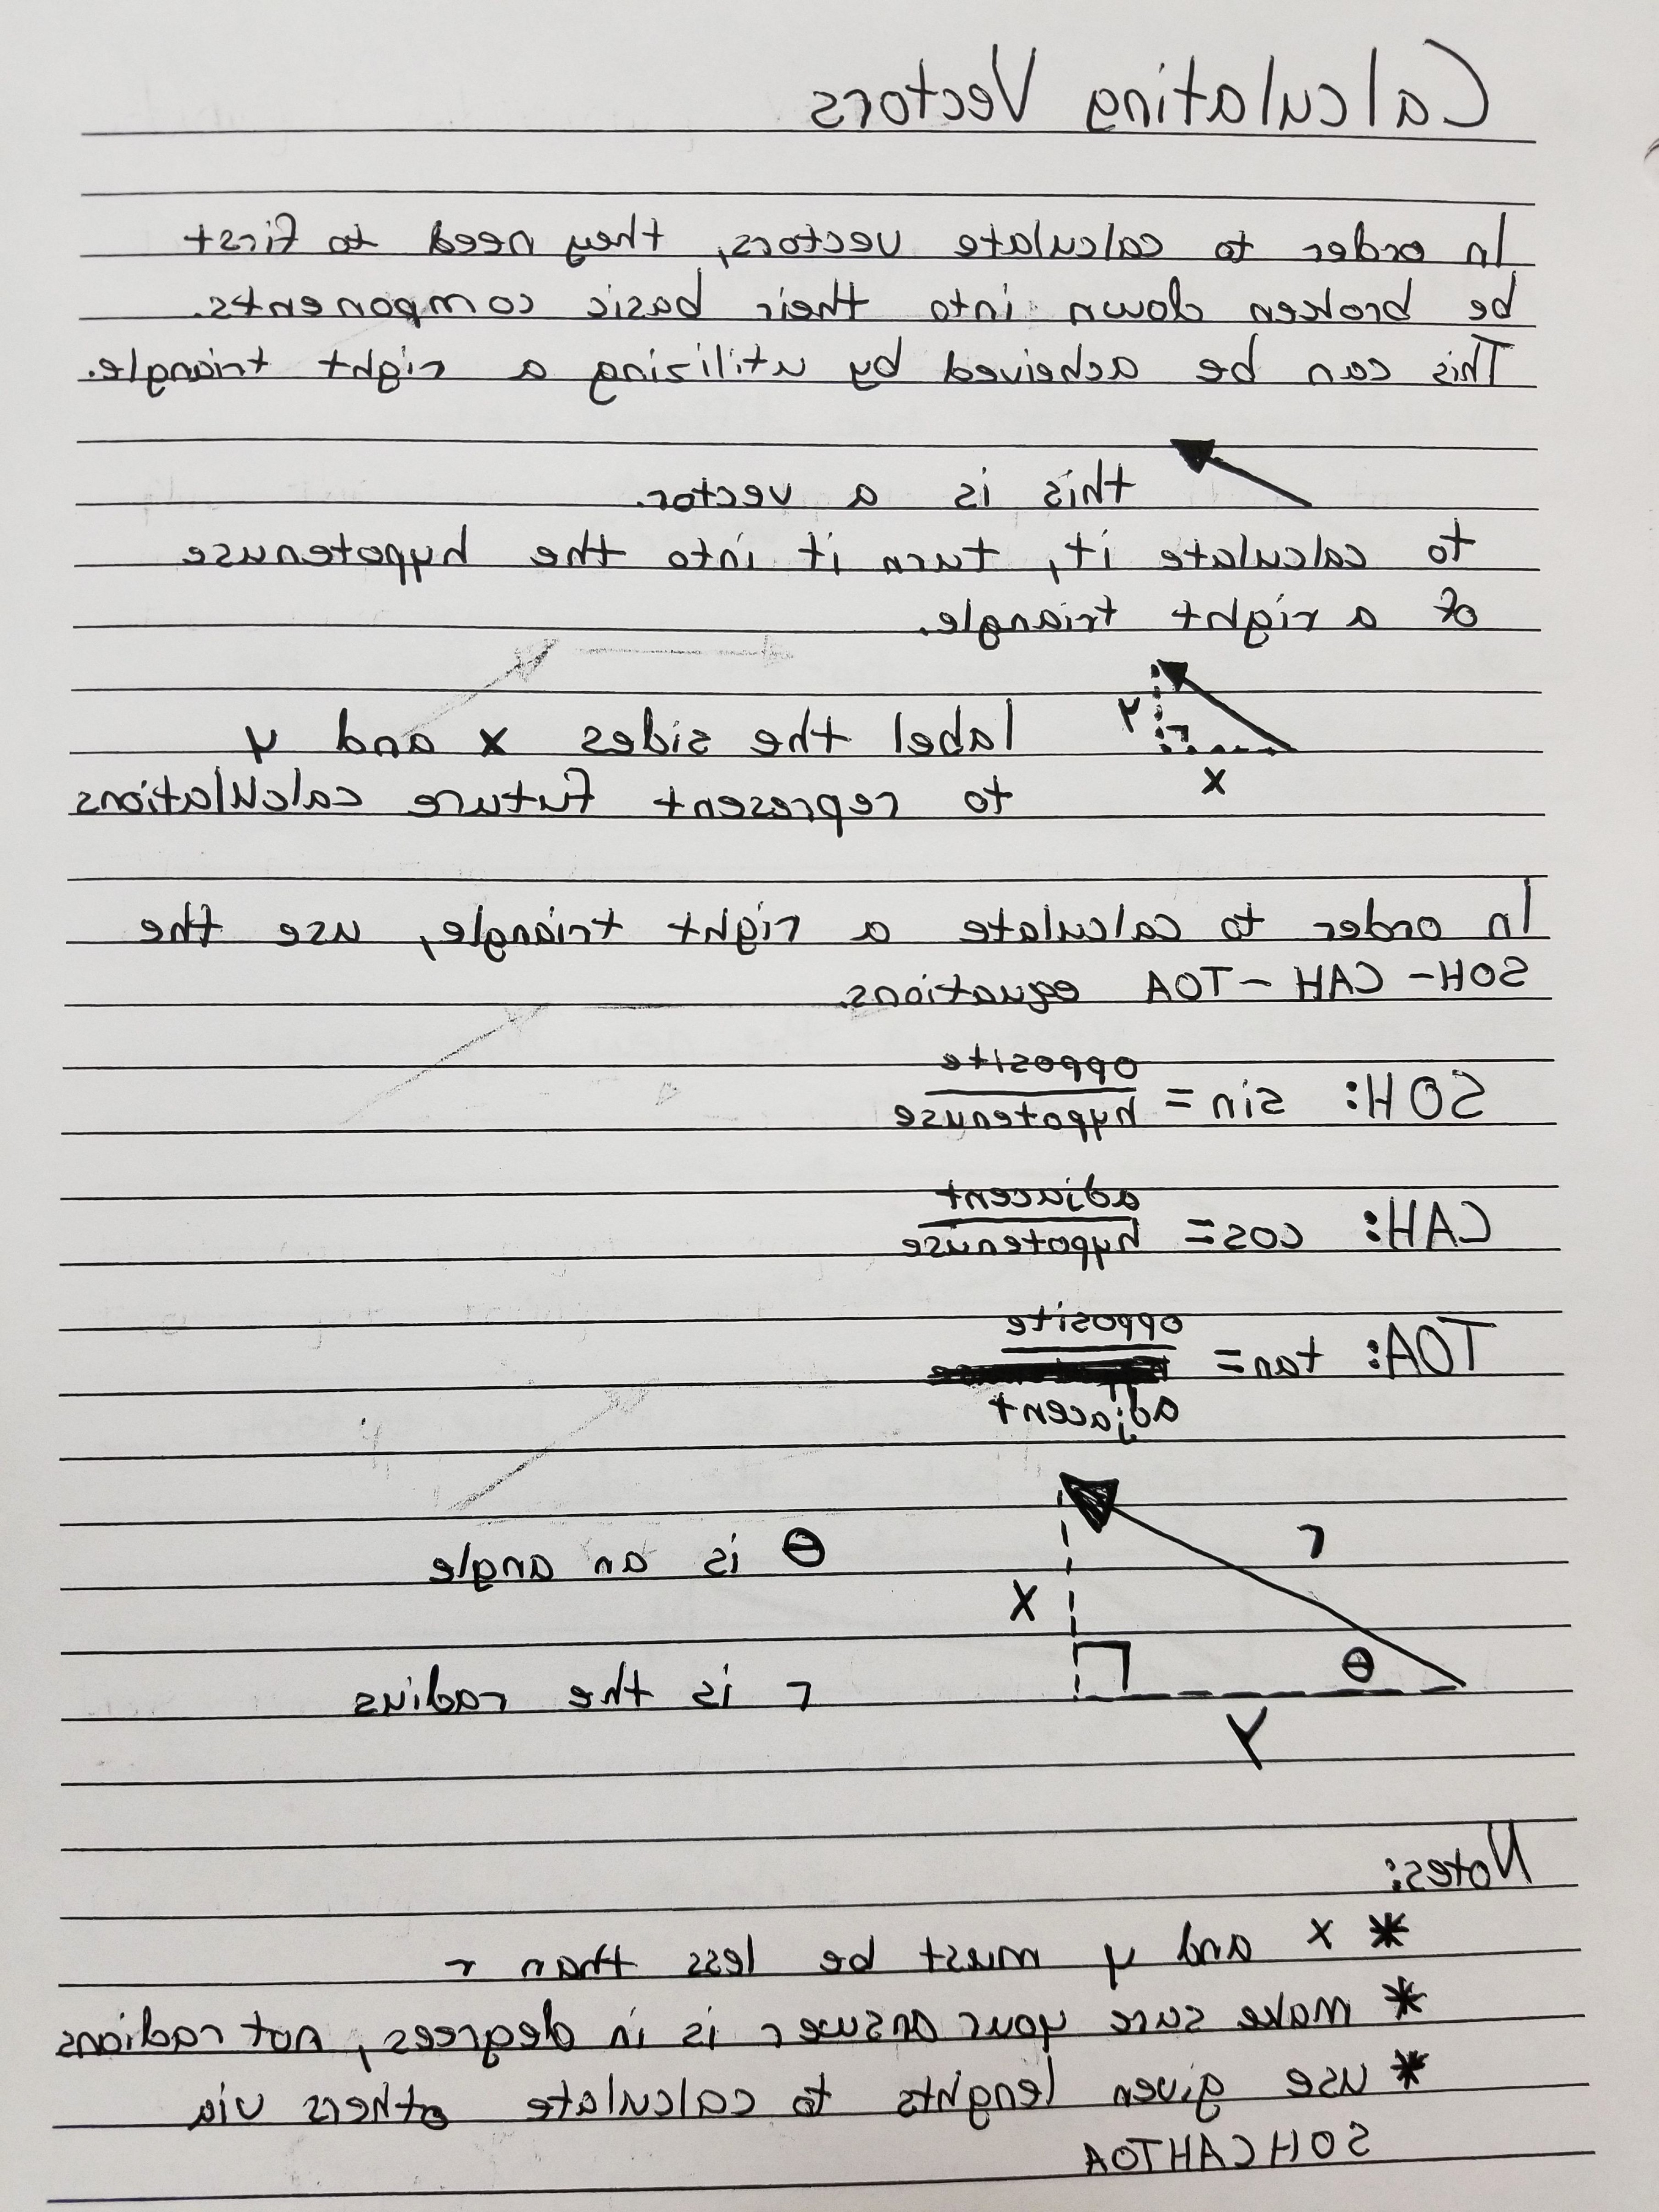 Calculating Vectors
In order to calculate vectors, they need to first
be broken down into their basic components.
This can be acheived by utilizing a right triangle.
this is a vector.
to calculate it, turn it into the hypotenuse
of a right triangle.
y
x
label the sides x and y
to represent future calculations
In order to calculate a right triangle, use the
SOH-CAH-TOA equations.
SOH: sin = opposite
hypotenuse
CAH: cos = adjacent
hypotenuse
TOA: tan = opposite
adjacent
r
θ is an angle
x
θ
r is the radius
y
Notes:
* x and y must be less than r
* make sure your answer is in degrees, not radians
* use given lenghts to calculate others via
SOHCAHTOA